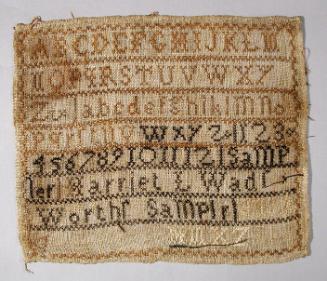 ABCDEFGHIJKLM
NOPQRSTUVWXY
Z abcdefghiklmno
wxyz 123
456789101112 Samp
ler Harriet L Wads
Worths Samplr